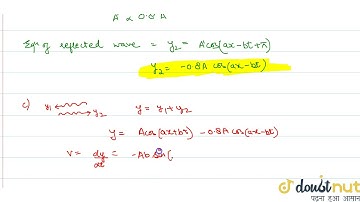 A' ∝ 0.8 A
Eqⁿ of reflected wave = y₂ = A' cos(ax - bt + π)
y₂ = -0.8A cos(ax - bt)
c) y₁ y₂ y = y₁ + y₂
y = A cos(ax + bt) - 0.8A cos(ax - bt)
V = dy/dt = -Ab sin (
doubtnut
पढ़ना हुआ आसान